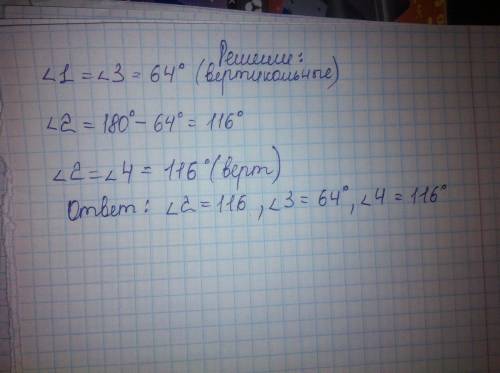 Решение:
∠1 = ∠3 = 64° (вертикольные)
∠2 = 180° - 64° = 116°
∠2 = ∠4 = 116° (верт)
Ответ: ∠2 = 116, ∠3 = 64°, ∠4 = 116°